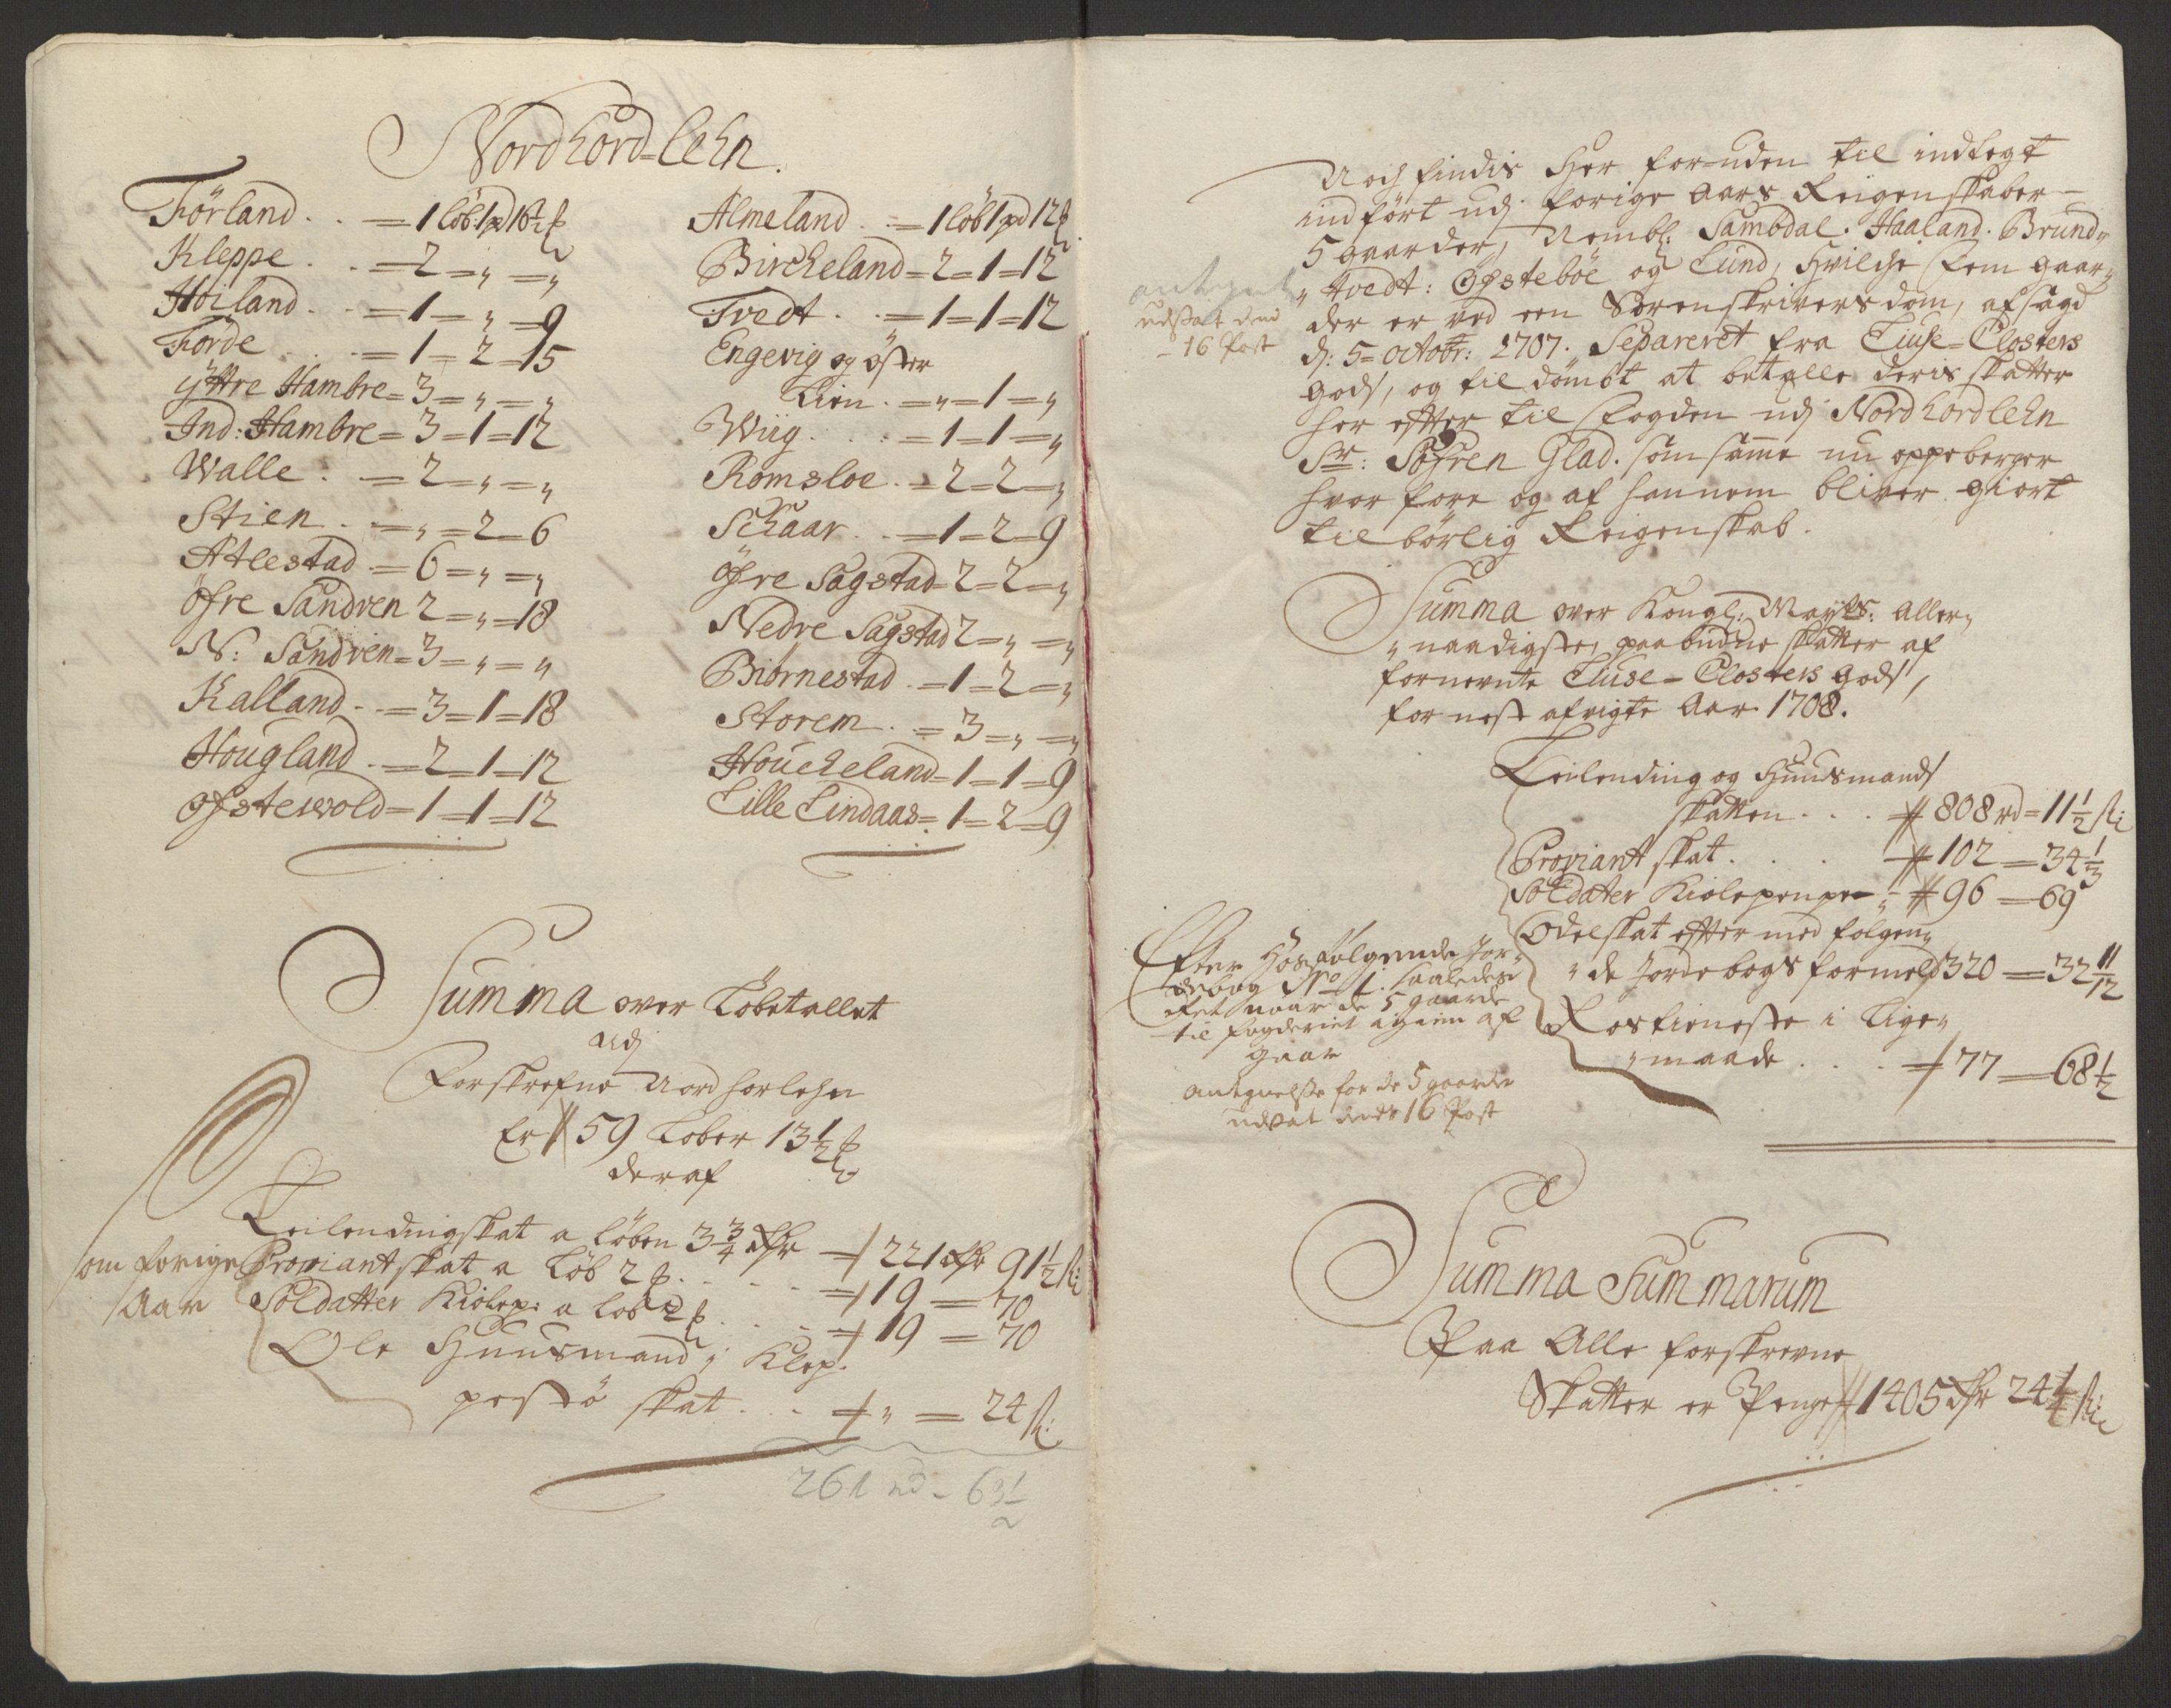 Nordhord=lehn.
Förland. . =1 löb 1 pd 16½ ℔
Kleppe . . =2=„=„
Höiland. . =1=„=9
Förde . . =1=2=15
Ÿttre Hambre=3=„=„
Ind: Hambre=3=1=12
Walle . =2=„=„
Stien . =„=2=6
Atlestad .=6=„=„
öfre Sandven 2=„=18
N: Sandven=3=„=„
Kalland . .=3=1=18
Hougland .=2=1=12
Ofstewold=1=1=12
Almeland . =1 löb 1 pd 12 ℔.
Bircheland=2=1=12
Tvedt . . =1=1=12
Engevig og öster
Lien . =„=1=„
Wiig . . . =1=1=„
Romsloe . =2=2=„
Schaar . . =1=2=9
öfre Sagstad=2=2=„
Nedre Sagstad 2=„=„
Biörnestad . =1=2=„
Storem . =3=„=„
Houcheland=1=1=9
Lille Lindaas=1=2=9
Summa over Löbetallet
udj
Forskrefne Nordhorlehn
Er 59 Løber 13½ ℔
deraf
Leilendingskat a löben 3¾ rdr = 221 rdr 91½ ſk:
som forige Proviantskat a Löb 2 ß. . . . = 19 = 70
Aar Soldatter Kiolep: a lob 2 ß . . . = 19 = 70
Ole Huusmand i Klep-
pestö skat . . . = „ = 24 ſk:
261 rd - 63½
Noch findis Her for-uden til indtegt
indfört udj forige aars Reigenskaber
5 gaarder, Nembl: Sambdal. Haaland. Brund„
„tvedt: Ögsteböe og Lund, hvilche fem gaar„
der er ved een Sorenskrivers dom, afsagd
d: 5 octobr: 1707. Separeret fra Liuse=Closters
gods, og tildömbt at betalle deris skatter
her efter til fogden udj Nordhordlehn
Sr: Söfren Glad. som samme nu oppeberger
hvor fore og af hannem bliver giort
tilbörlig Reigenskab.
antegnet
udsat den
16 Post
Summa over Kongl: Mayts: Aller„
„naadigste, paabudne skatter af
fornevnte Liuse=Closters gods,
for nest afvigte Aar 1708.
Leilending og Huusmands
skatten . . . 808 rd = 11½ ſk:
Proviant skat . . . 102 = 34⅓
Soldater Kiolepenger . 96 = 69
Odelskat efter med folgen„
„de Jordebogs formeld 320 = 32 11/12
Rostieneste i Lige„
„maade . . . = 77 = 68½
Efter Hosfølgende Jor„
debog No 1. saaledes
at naar de 5 gaarde
til fogderiet igien af
gaar
antegnelse for de 5 gaarde
udsat dend 16 Post
Summa Summarum
Paa Alle forskrevne
Skatter er Penge 1405 rdr 24¼ ſk: